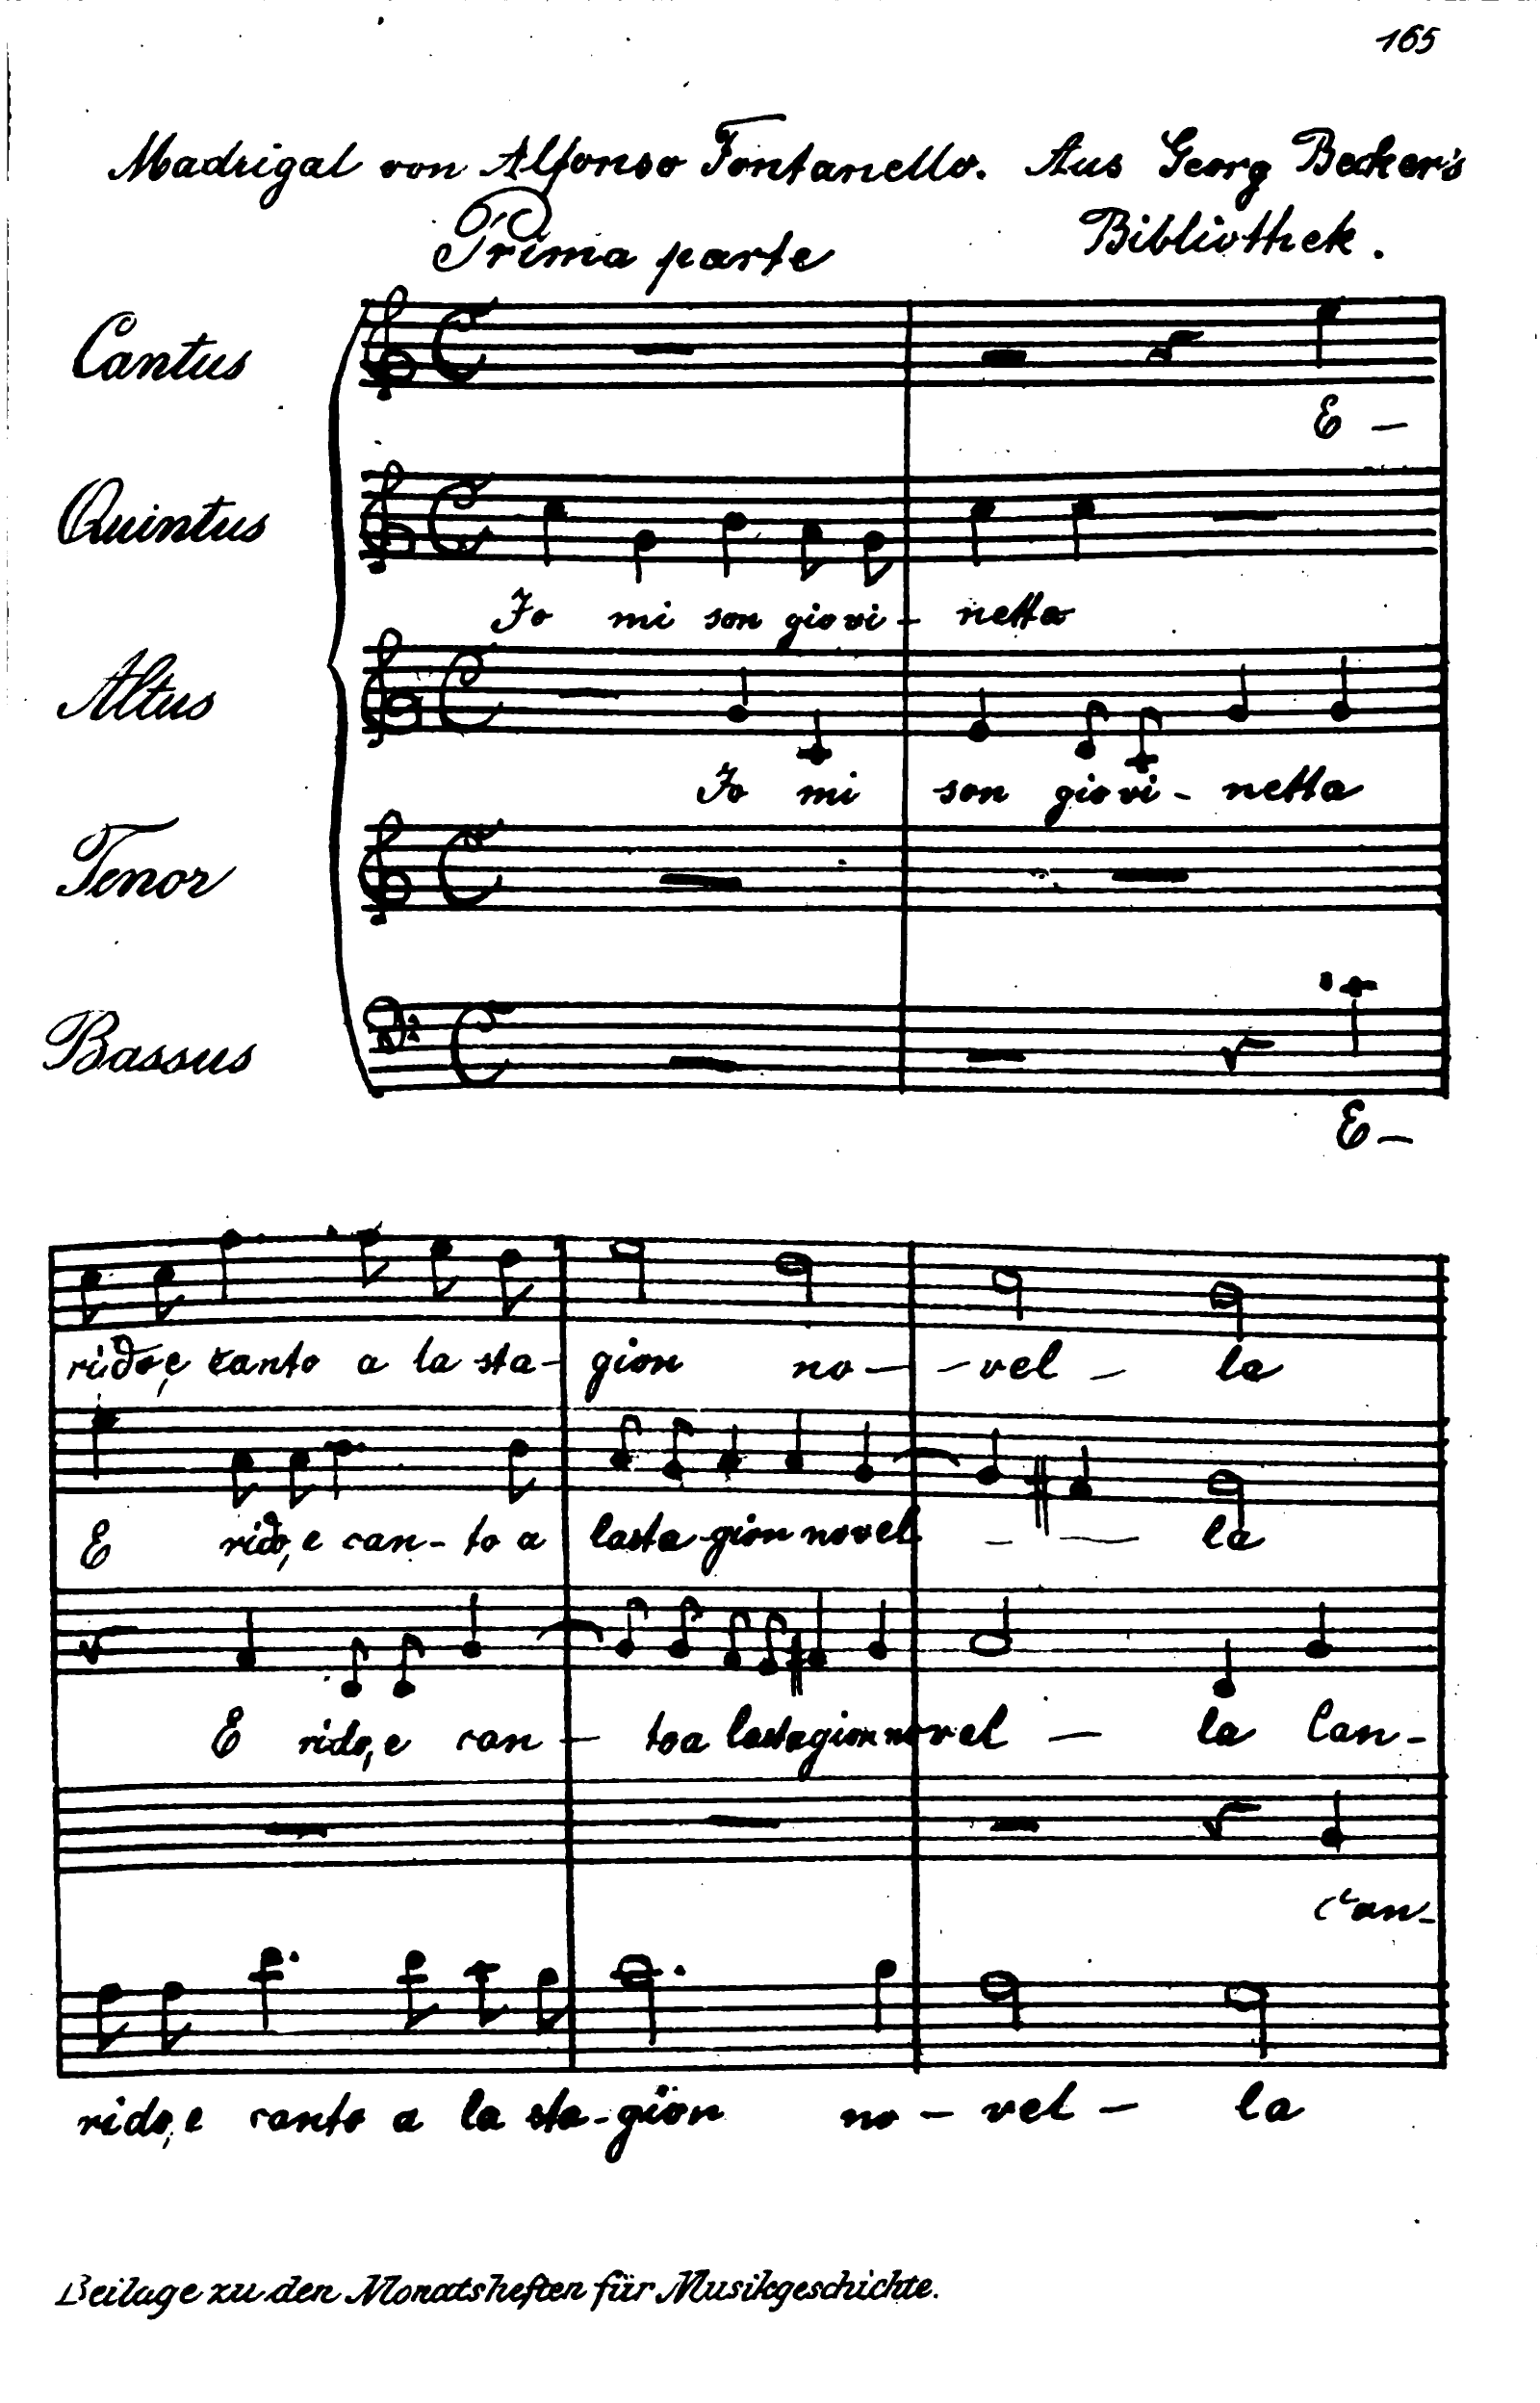 165
Madrigal von Alfonso Fontanello. Aus Georg Becker's
Bibliothek.
Prima parte
Cantus
E –
Quintus
Io mi son giovi – netta
Altus
Io mi son giovi – netta
Tenor
Bassus
E –
rido, e canto a la sta – gion no – – vel – la
E rido, e can – to a la sta gion novel – — la
E rido, e can – to a la stagion novel — la Can –
Can –
rido, e canto a la sta – gion no – vel – la
Beilage zu den Monatsheften für Musikgeschichte.